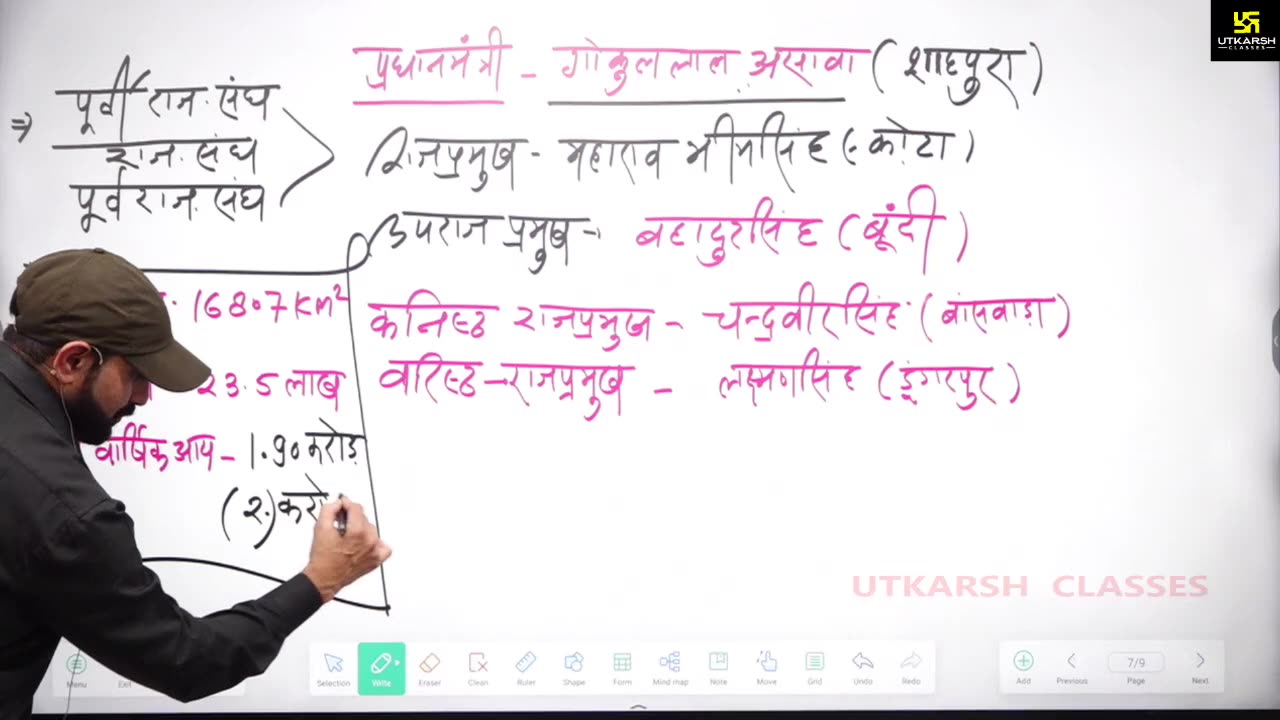 UTKARSH
CLASSES
प्रधानमंत्री - गोकुल लाल असावा (शाहपुरा)
⇒ पूर्वी राज. संघ
राज. संघ
पूर्व राज. संघ
राजप्रमुख - महाराव भीमसिंह (कोटा)
उपराज प्रमुख - बहादुरसिंह (बूंदी)
कनिष्ठ राजप्रमुख - चन्द्रवीरसिंह (बांसवाड़ा)
वरिष्ठ - राजप्रमुख - लक्ष्मणसिंह (डूंगरपुर)
16807 Km²
23.5 लाख
वार्षिक आय - 1.90 करोड़
(2.) करो
UTKARSH CLASSES
Menu Exit Selection Write Eraser Clean Ruler Shape Form Mind map Note Move Grid Undo Redo Add Previous 7/9 Page Next